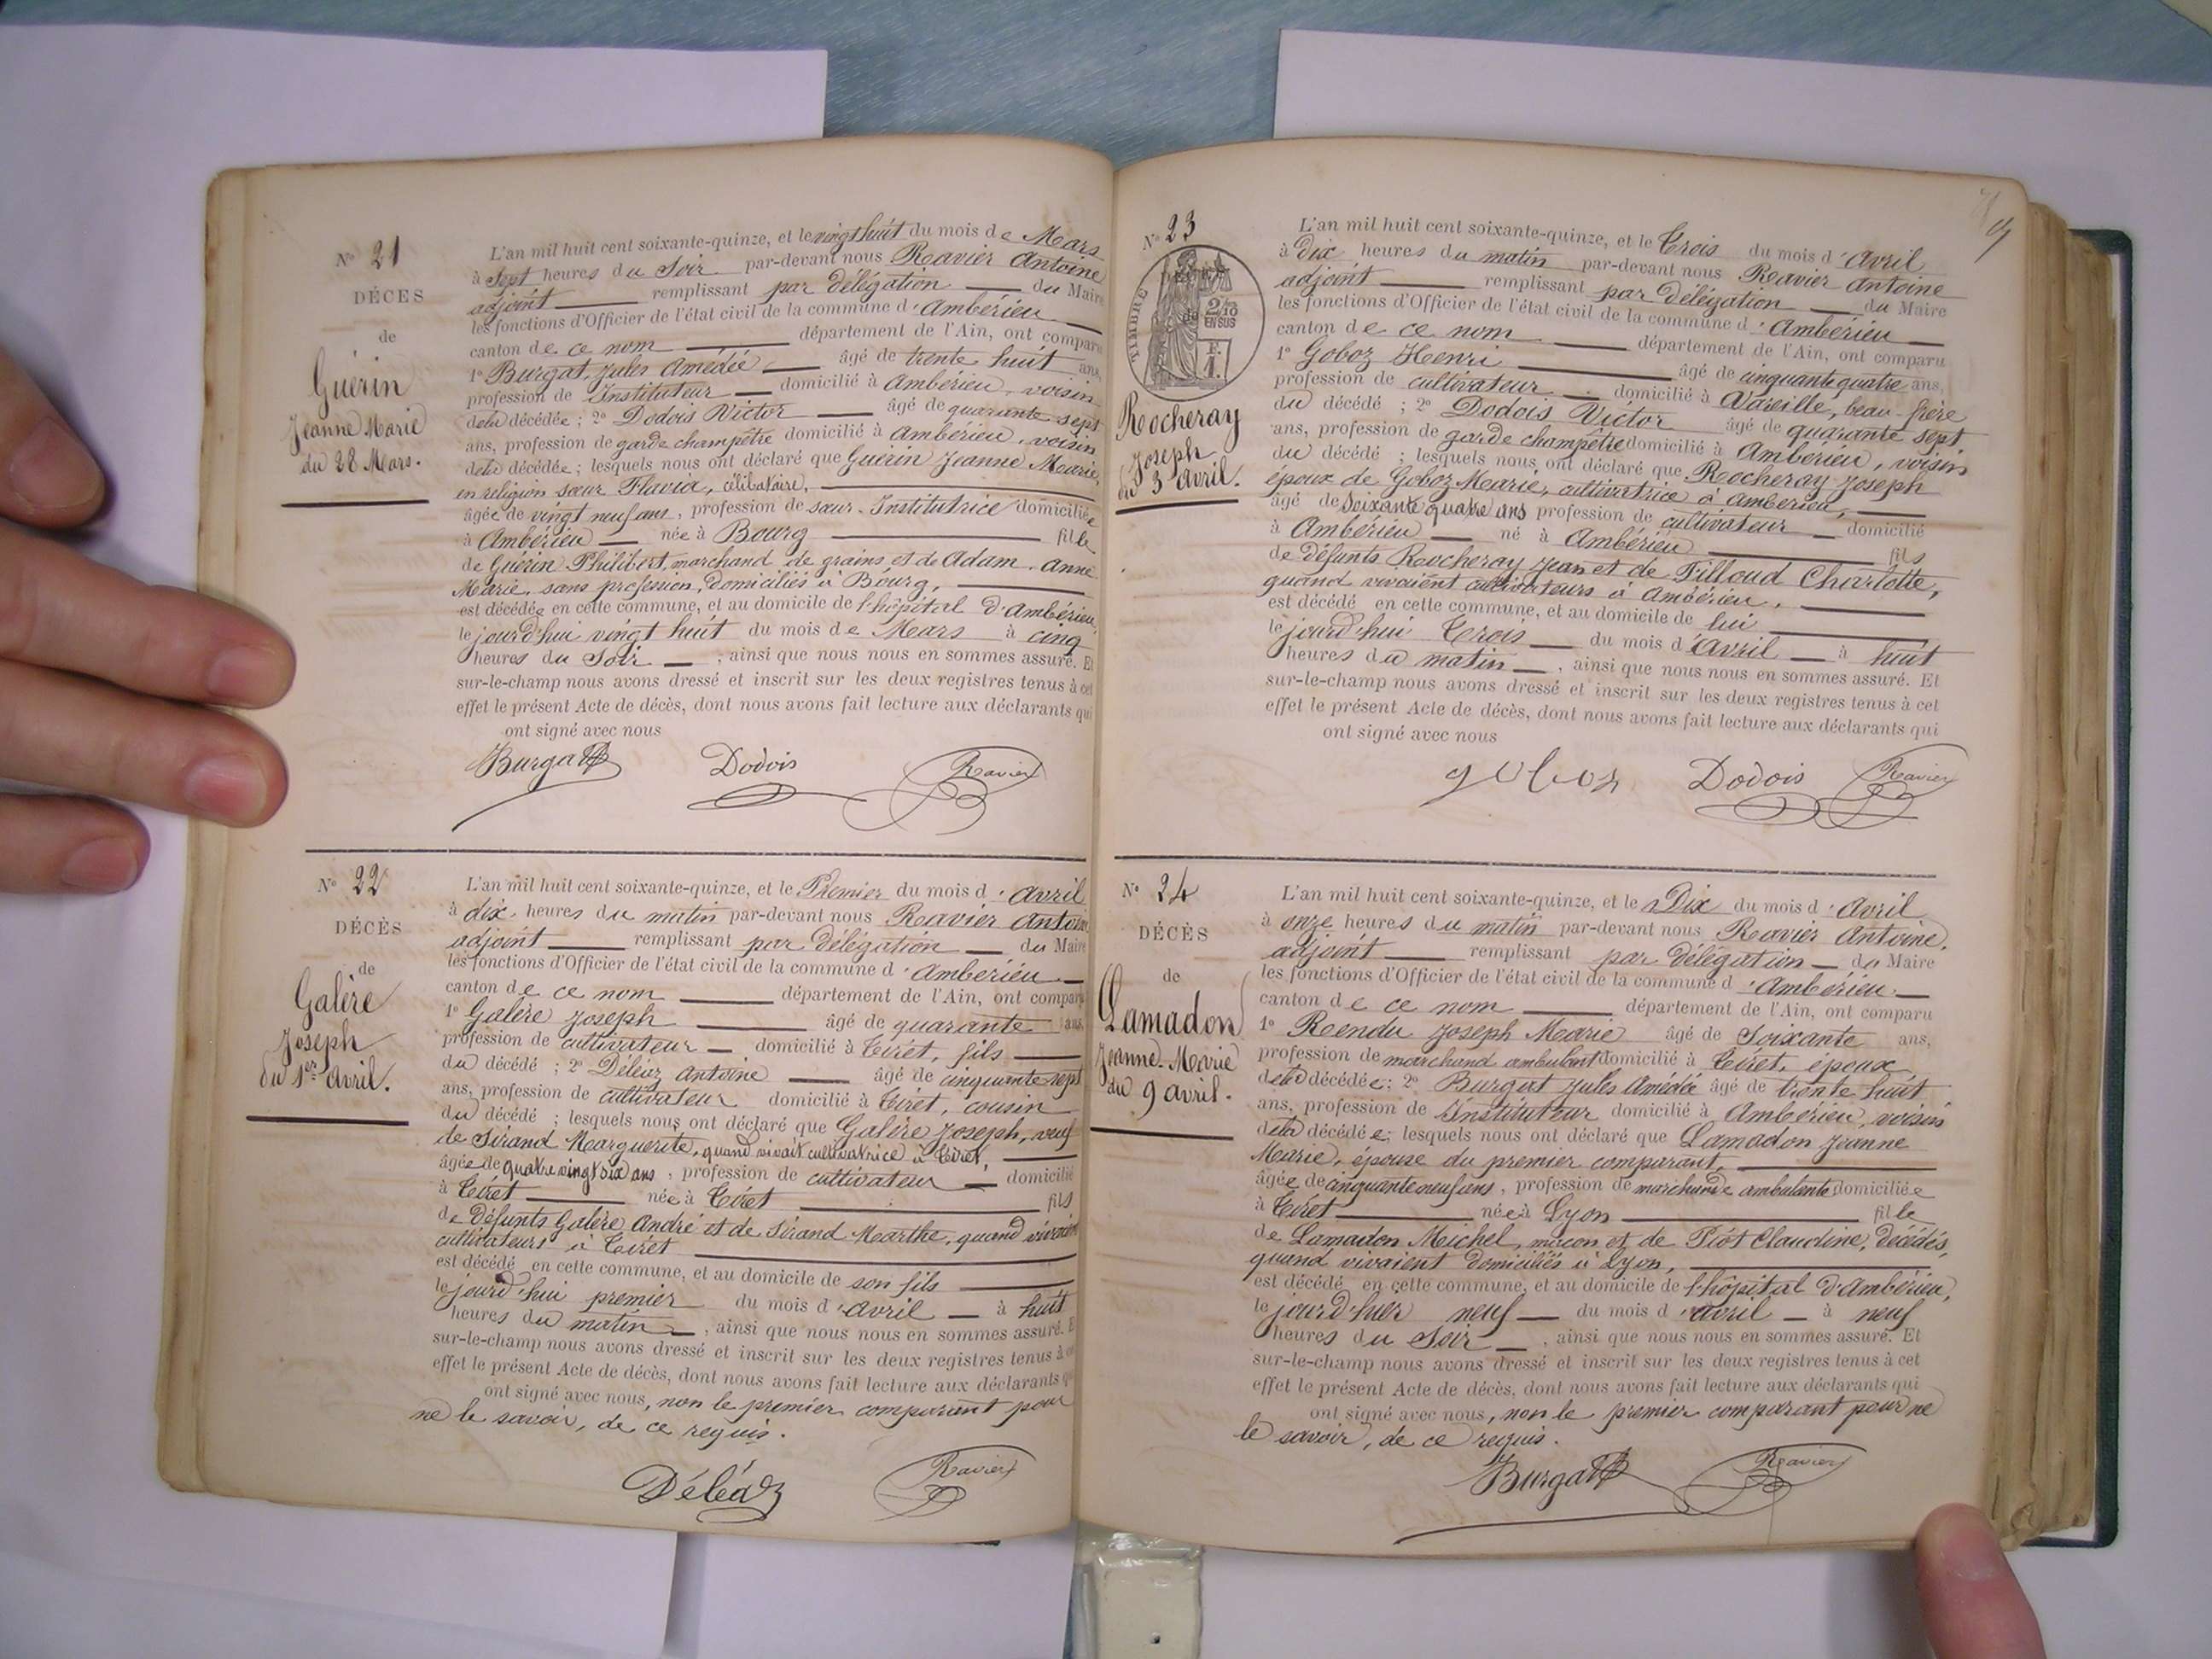 N° 21
DÉCES
de
Guérin
Jeanne Marie
du 28 Mars.
L'an mil huit cent soixante-quinze, et le vingt huit du mois de Mars
à Sept heures du Soir par-devant nous Ravier Antoine
adjoint remplissant par délégation du Maire
les fonctions d'Officier de l'état civil de la commune d'Ambérieu
canton de ce nom département de l'Ain, ont comparu
1° Burgat, Jules Amédée âgé de trente huit ans,
profession de Instituteur domicilié à Ambérieu, voisin
de la décédée ; 2° Dodois Victor âgé de quarante sept
ans, profession de garde champêtre domicilié à Ambérieu, voisin
de la décédée ; lesquels nous ont déclaré que Guérin Jeanne Marie,
en religion sœur Flavia, célibataire,
âgée de vingt neuf ans, profession de sœur-Institutrice domiciliée
à Ambérieu née à Bourg fille
de Guérin Philibert, marchand de grains et de Adam Anne
Marie, sans profession, domiciliés à Bourg,
est décédée en cette commune, et au domicile de l'hôpital d'Ambérieu,
le jourd'hui vingt huit du mois de Mars à cinq
heures du Soir ; ainsi que nous nous en sommes assuré. Et
sur-le-champ nous avons dressé et inscrit sur les deux registres tenus à cet
effet le présent Acte de décès, dont nous avons fait lecture aux déclarants qui
ont signé avec nous
Burgat Dodois Ravier
N° 22
DÉCÈS
de
Galère
Joseph
du 1er Avril.
L'an mil huit cent soixante-quinze, et le Premier du mois d'Avril
à dix heures du matin par-devant nous Ravier Antoine
adjoint remplissant par délégation du Maire
les fonctions d'Officier de l'état civil de la commune d'Ambérieu
canton de ce nom département de l'Ain, ont comparu
1° Galère Joseph âgé de quarante ans,
profession de cultivateur domicilié à Tiret, fils
du décédé ; 2° Déléaz Antoine âgé de cinquante sept
ans, profession de cultivateur domicilié à Tiret, cousin
du décédé ; lesquels nous ont déclaré que Galère Joseph, veuf
de Sirand Marguerite, quand vivait cultivatrice à Tiret,
âgée de quatre vingt six ans, profession de cultivateur domicilié
à Tiret née à Tiret fils
de défunts Galère André et de Sirand Marthe, quand vivaient
cultivateurs à Tiret
est décédé en cette commune, et au domicile de son fils
le jourd'hui premier du mois d'Avril à huit
heures du matin, ainsi que nous nous en sommes assuré. E
sur-le-champ nous avons dressé et inscrit sur les deux registres tenus à
effet le présent Acte de décès, dont nous avons fait lecture aux déclarants q
ont signé avec nous, non le premier comparant pour
ne le savoir, de ce requis.
Déléaz Ravier
N° 23
TIMBRE
2/10
EN SUS
F.
1.
Rocheray
Joseph
du 3 Avril.
L'an mil huit cent soixante-quinze, et le Trois du mois d'Avril
à Dix heures du matin par-devant nous Ravier Antoine
adjoint remplissant par délégation du Maire
les fonctions d'Officier de l'état civil de la commune d'Ambérieu
canton de ce nom département de l'Ain, ont comparu
1° Goboz Henri âgé de cinquante quatre ans,
profession de cultivateur domicilié à Vareille, beau-frère
du décédé ; 2° Dodois Victor âgé de quarante sept
ans, profession de garde champêtre domicilié à Ambérieu, voisin
du décédé ; lesquels nous ont déclaré que Rocheray Joseph
époux de Goboz Marie, cultivatrice à Ambérieu,
âgé de Soixante quatre ans profession de cultivateur domicilié
à Ambérieu né à Ambérieu fils
de défunts Rocheray Jean et de Tilloud Charlotte,
quand vivaient cultivateurs à Ambérieu,
est décédé en cette commune, et au domicile de lui
le jourd'hui Trois du mois d'Avril à huit
heures du matin, ainsi que nous nous en sommes assuré. Et
sur-le-champ nous avons dressé et inscrit sur les deux registres tenus à cet
effet le présent Acte de décès, dont nous avons fait lecture aux déclarants qui
ont signé avec nous
goboz Dodois Ravier
N° 24
DÉCÈS
de
Lamadon
Jeanne-Marie
du 9 avril.
L'an mil huit cent soixante-quinze, et le Dix du mois d'Avril
à onze heures du matin par-devant nous Ravier Antoine,
adjoint remplissant par délégation du Maire
les fonctions d'Officier de l'état civil de la commune d'Ambérieu
canton de ce nom département de l'Ain, ont comparu
1° Rendu Joseph Marie âgé de Soixante ans,
profession de marchand ambulant domicilié à Tiret, époux
de la décédée ; 2° Burgat Jules Amédée âgé de trente huit
ans, profession de Instituteur domicilié à Ambérieu, voisin
de la décédée ; lesquels nous ont déclaré que Lamadon Jeanne
Marie, épouse du premier comparant,
âgée de cinquante neuf ans, profession de marchande ambulante domiciliée
à Tiret née à Lyon fille
de Lamadon Michel, maçon et de Piot Claudine, décédés,
quand vivaient domiciliés à Lyon,
est décédé en cette commune, et au domicile de l'hôpital d'Ambérieu,
le jourd'hier neuf du mois d'avril à neuf
heures du Soir, ainsi que nous nous en sommes assuré. Et
sur-le-champ nous avons dressé et inscrit sur les deux registres tenus à cet
effet le présent Acte de décès, dont nous avons fait lecture aux déclarants qui
ont signé avec nous, non le premier comparant pour ne
le savoir, de ce requis.
Burgat Ravier